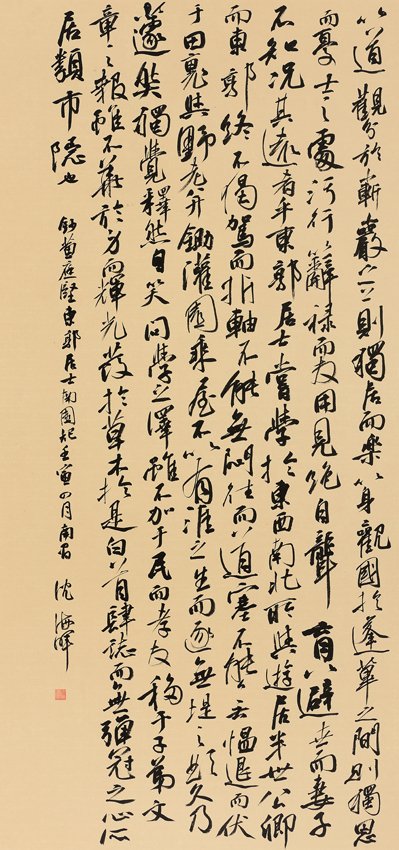 以道觀分於嶄巖之上則獨居而樂以身觀國於蓬蓽之間則獨思
而憂士之處污行以辭祿而友用見絕自聾盲以避世而妻子
不知況其遠者乎東郭居士嘗學於東西南北所與遊居半世公卿
而東郭終不偶駕而折軸不能無悶往而道塞不能云慍退而伏
于田裏與野老并鋤灌園乘屋不以有涯之生而逐無堤之欲久乃
蘧然獨覺釋然自笑問學之澤雖不加于民而孝友移于子弟文
章之報雖不華於身而輝光發於草木於是白首肆誌而無彈冠之心所
居類市隱也
鈔黃庭堅東郭居士南園記壬寅四月南昌 沈海暉